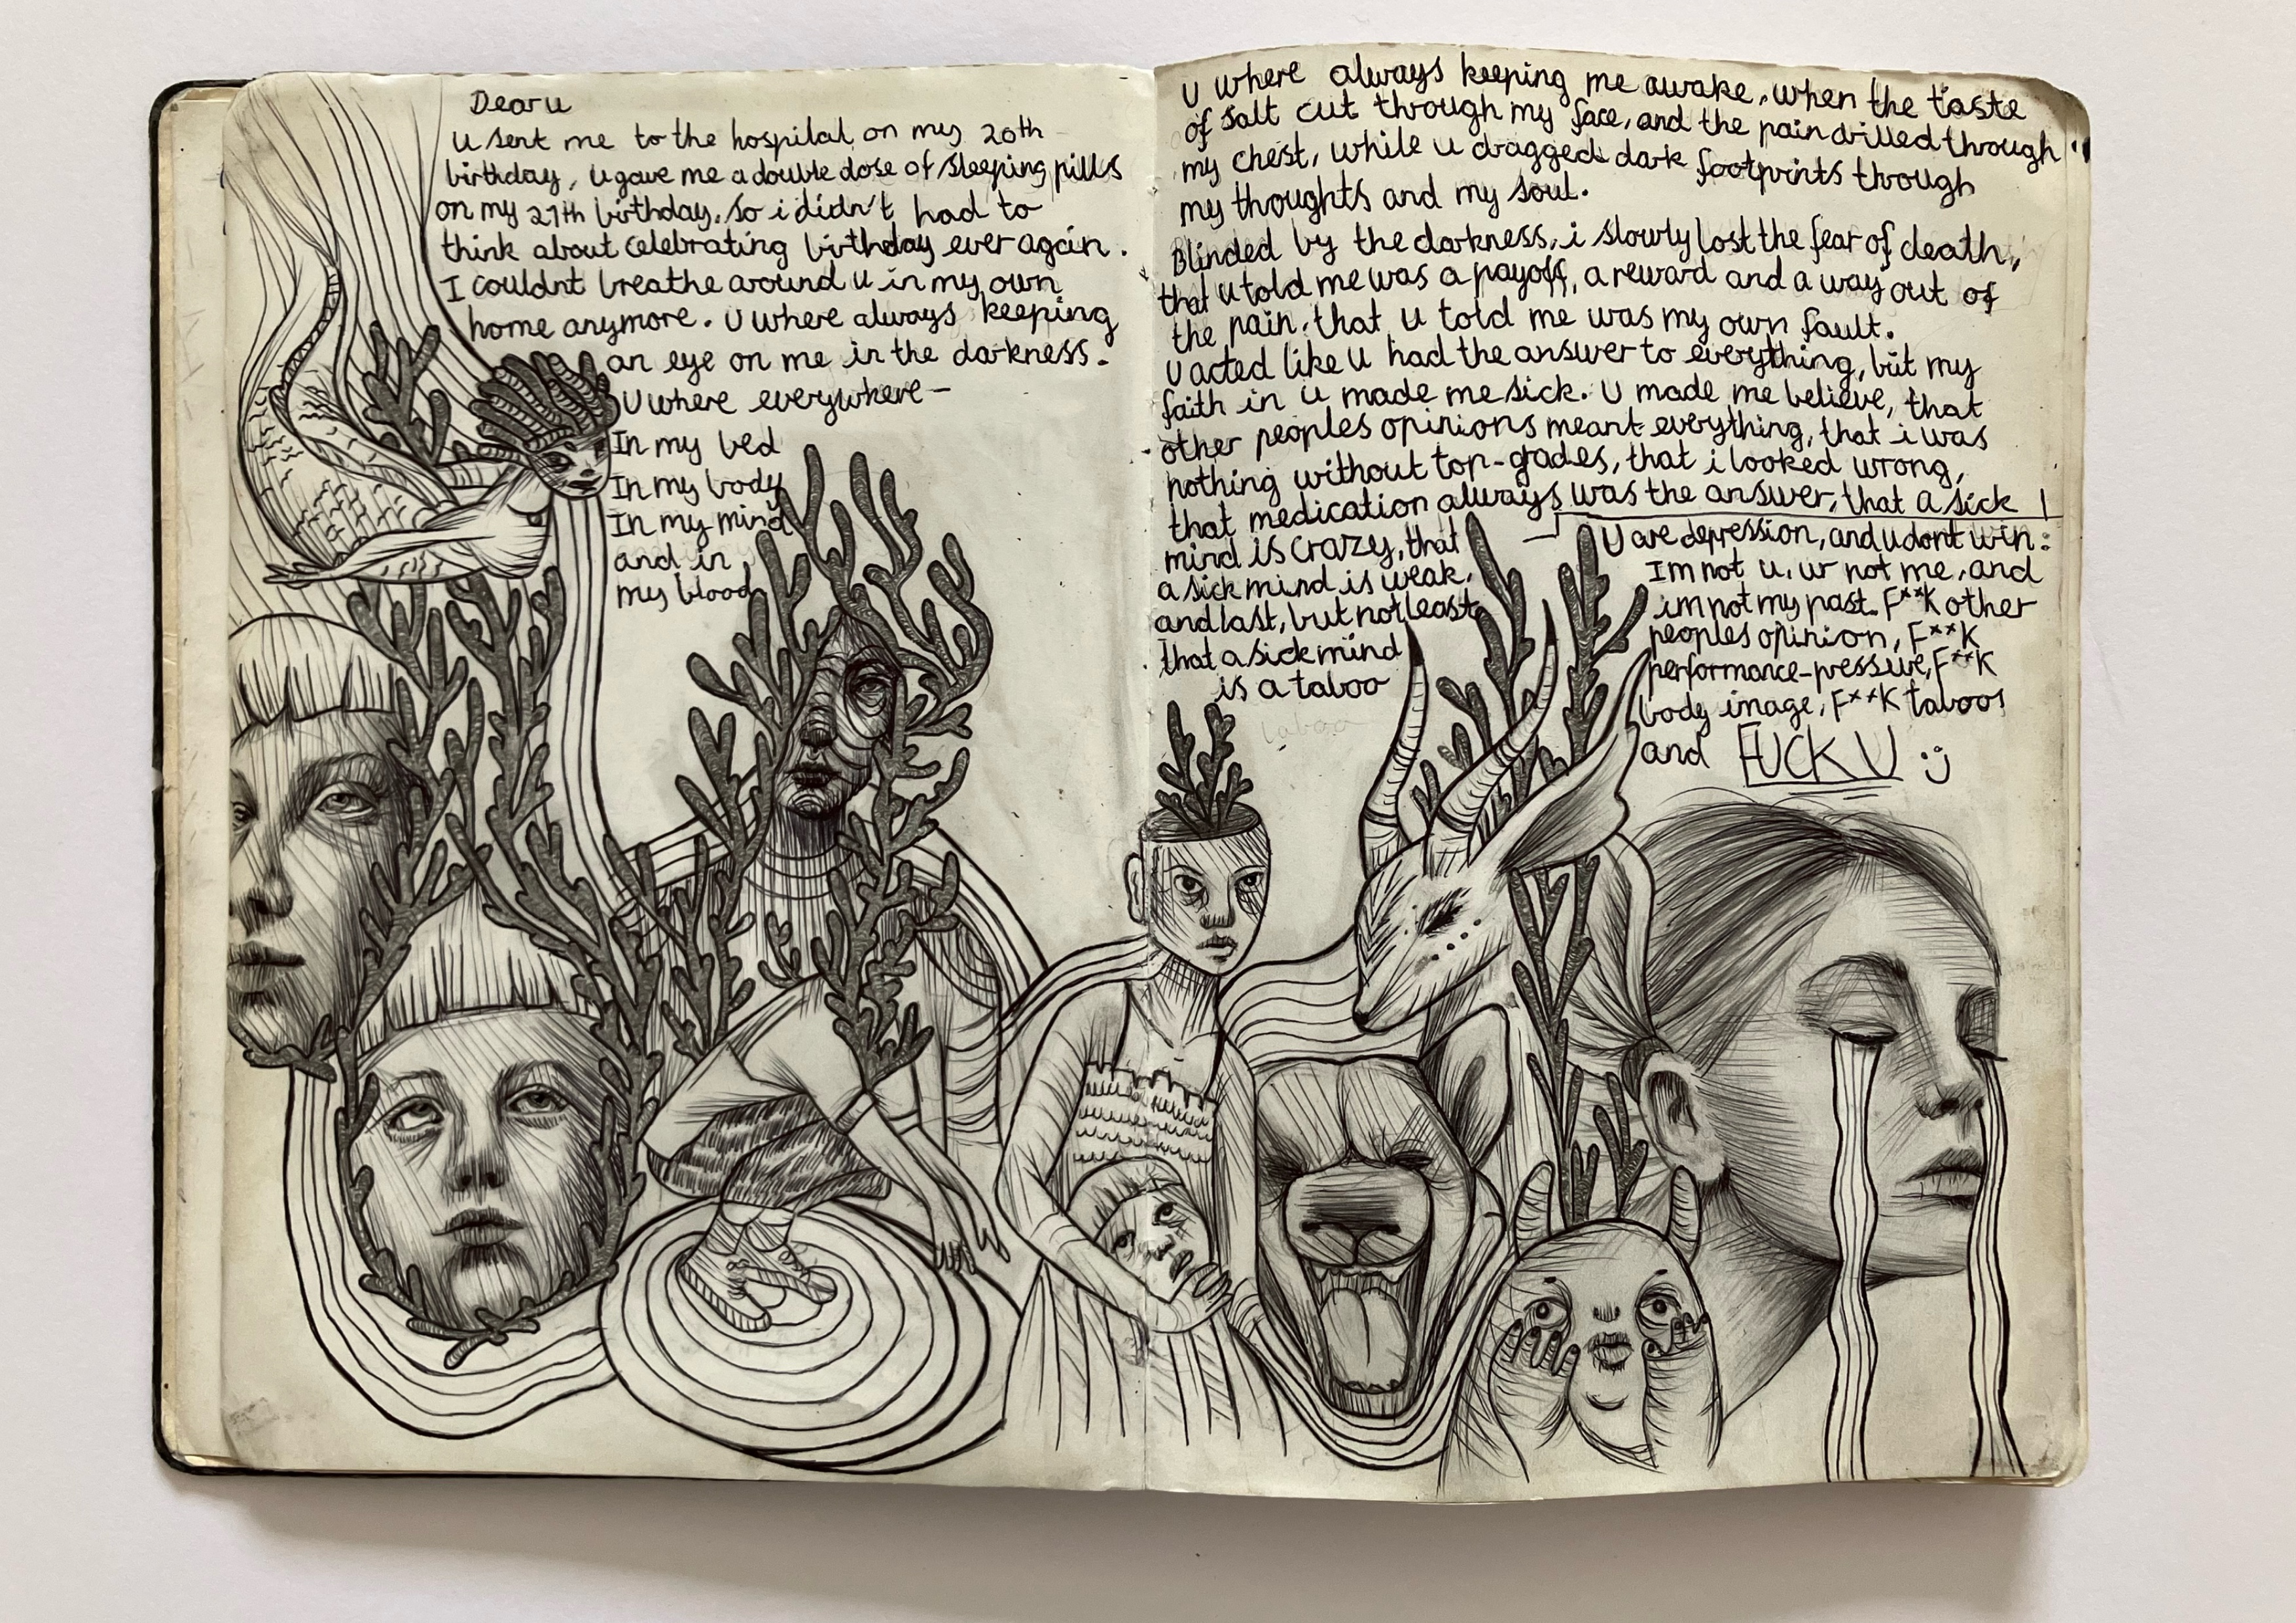 Dear u
u sent me to the hospital, on my 20th
birthday, u gave me a double dose of sleeping pills
on my 21th birthday. so i didn't had to
think about celebrating birthday ever again.
I couldnt breathe around u in my own
home anymore. U where always keeping
an eye on me in the darkness.
U where everywhere -
In my bed
In my body
In my mind
and in
my blood
U where always keeping me awake, when the taste
of salt cut through my face, and the pain drilled through
my chest, while u dragged dark footprints through
my thoughts and my soul.
Blinded by the darkness, i slowly lost the fear of death,
that u told me was a payoff, a reward and a way out of
the pain, that u told me was my own fault.
U acted like u had the answer to everything, but my
faith in u made me sick. U made me believe, that
other peoples opinions meant everything, that i was
nothing without top-grades, that i looked wrong,
that medication always was the answer, that a sick
mind is crazy, that
a sick mind is weak,
and last, but not least
that a sick mind
is a taboo
U are depression, and u dont win:
Im not u, ur not me, and
im not my past. F**K other
peoples opinion, F**K
performance-pressure, F**K
body image, F**K taboos
and FUCK U :)